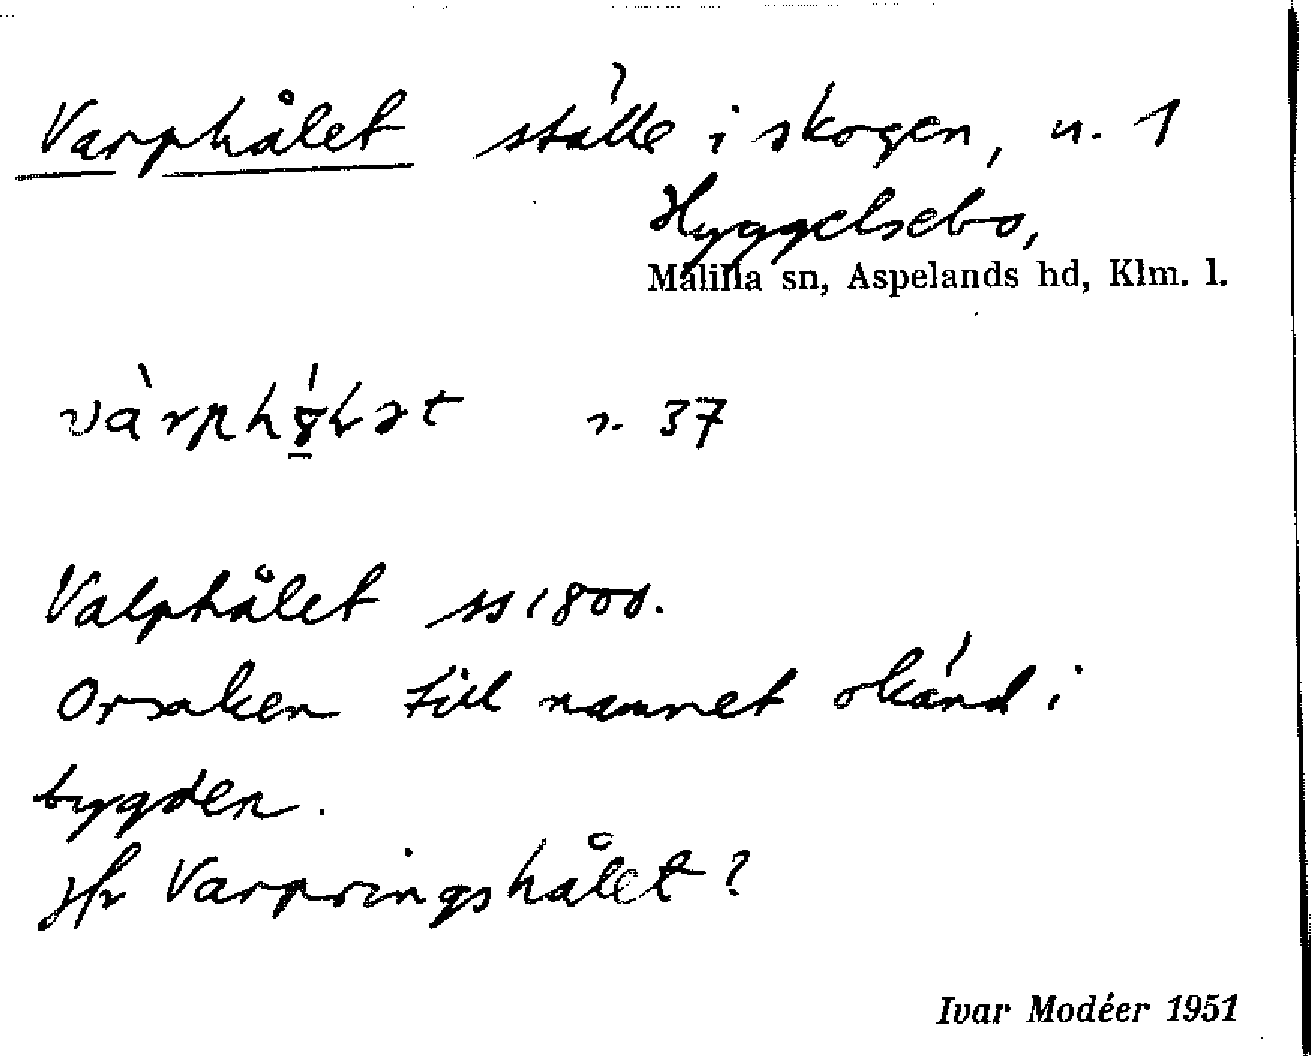 Varphålet ställe i skogen, u. 1
Hyggelsebo,
Målilla sn, Aspelands hd, Klm. l.
s. 37
Valphålet ss 1800.
Orsaken till namnet okänd i
bygden.
Jfr Varpringshålet?
Ivar Modéer 1951